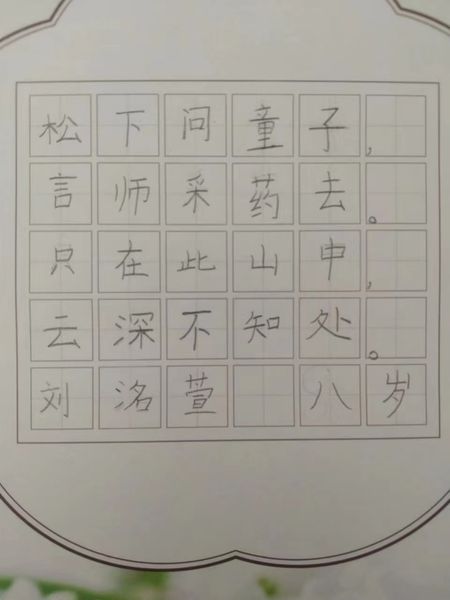 松下问童子，
言师采药去。
只在此山申，
云深不知处。
刘洺萱 八岁